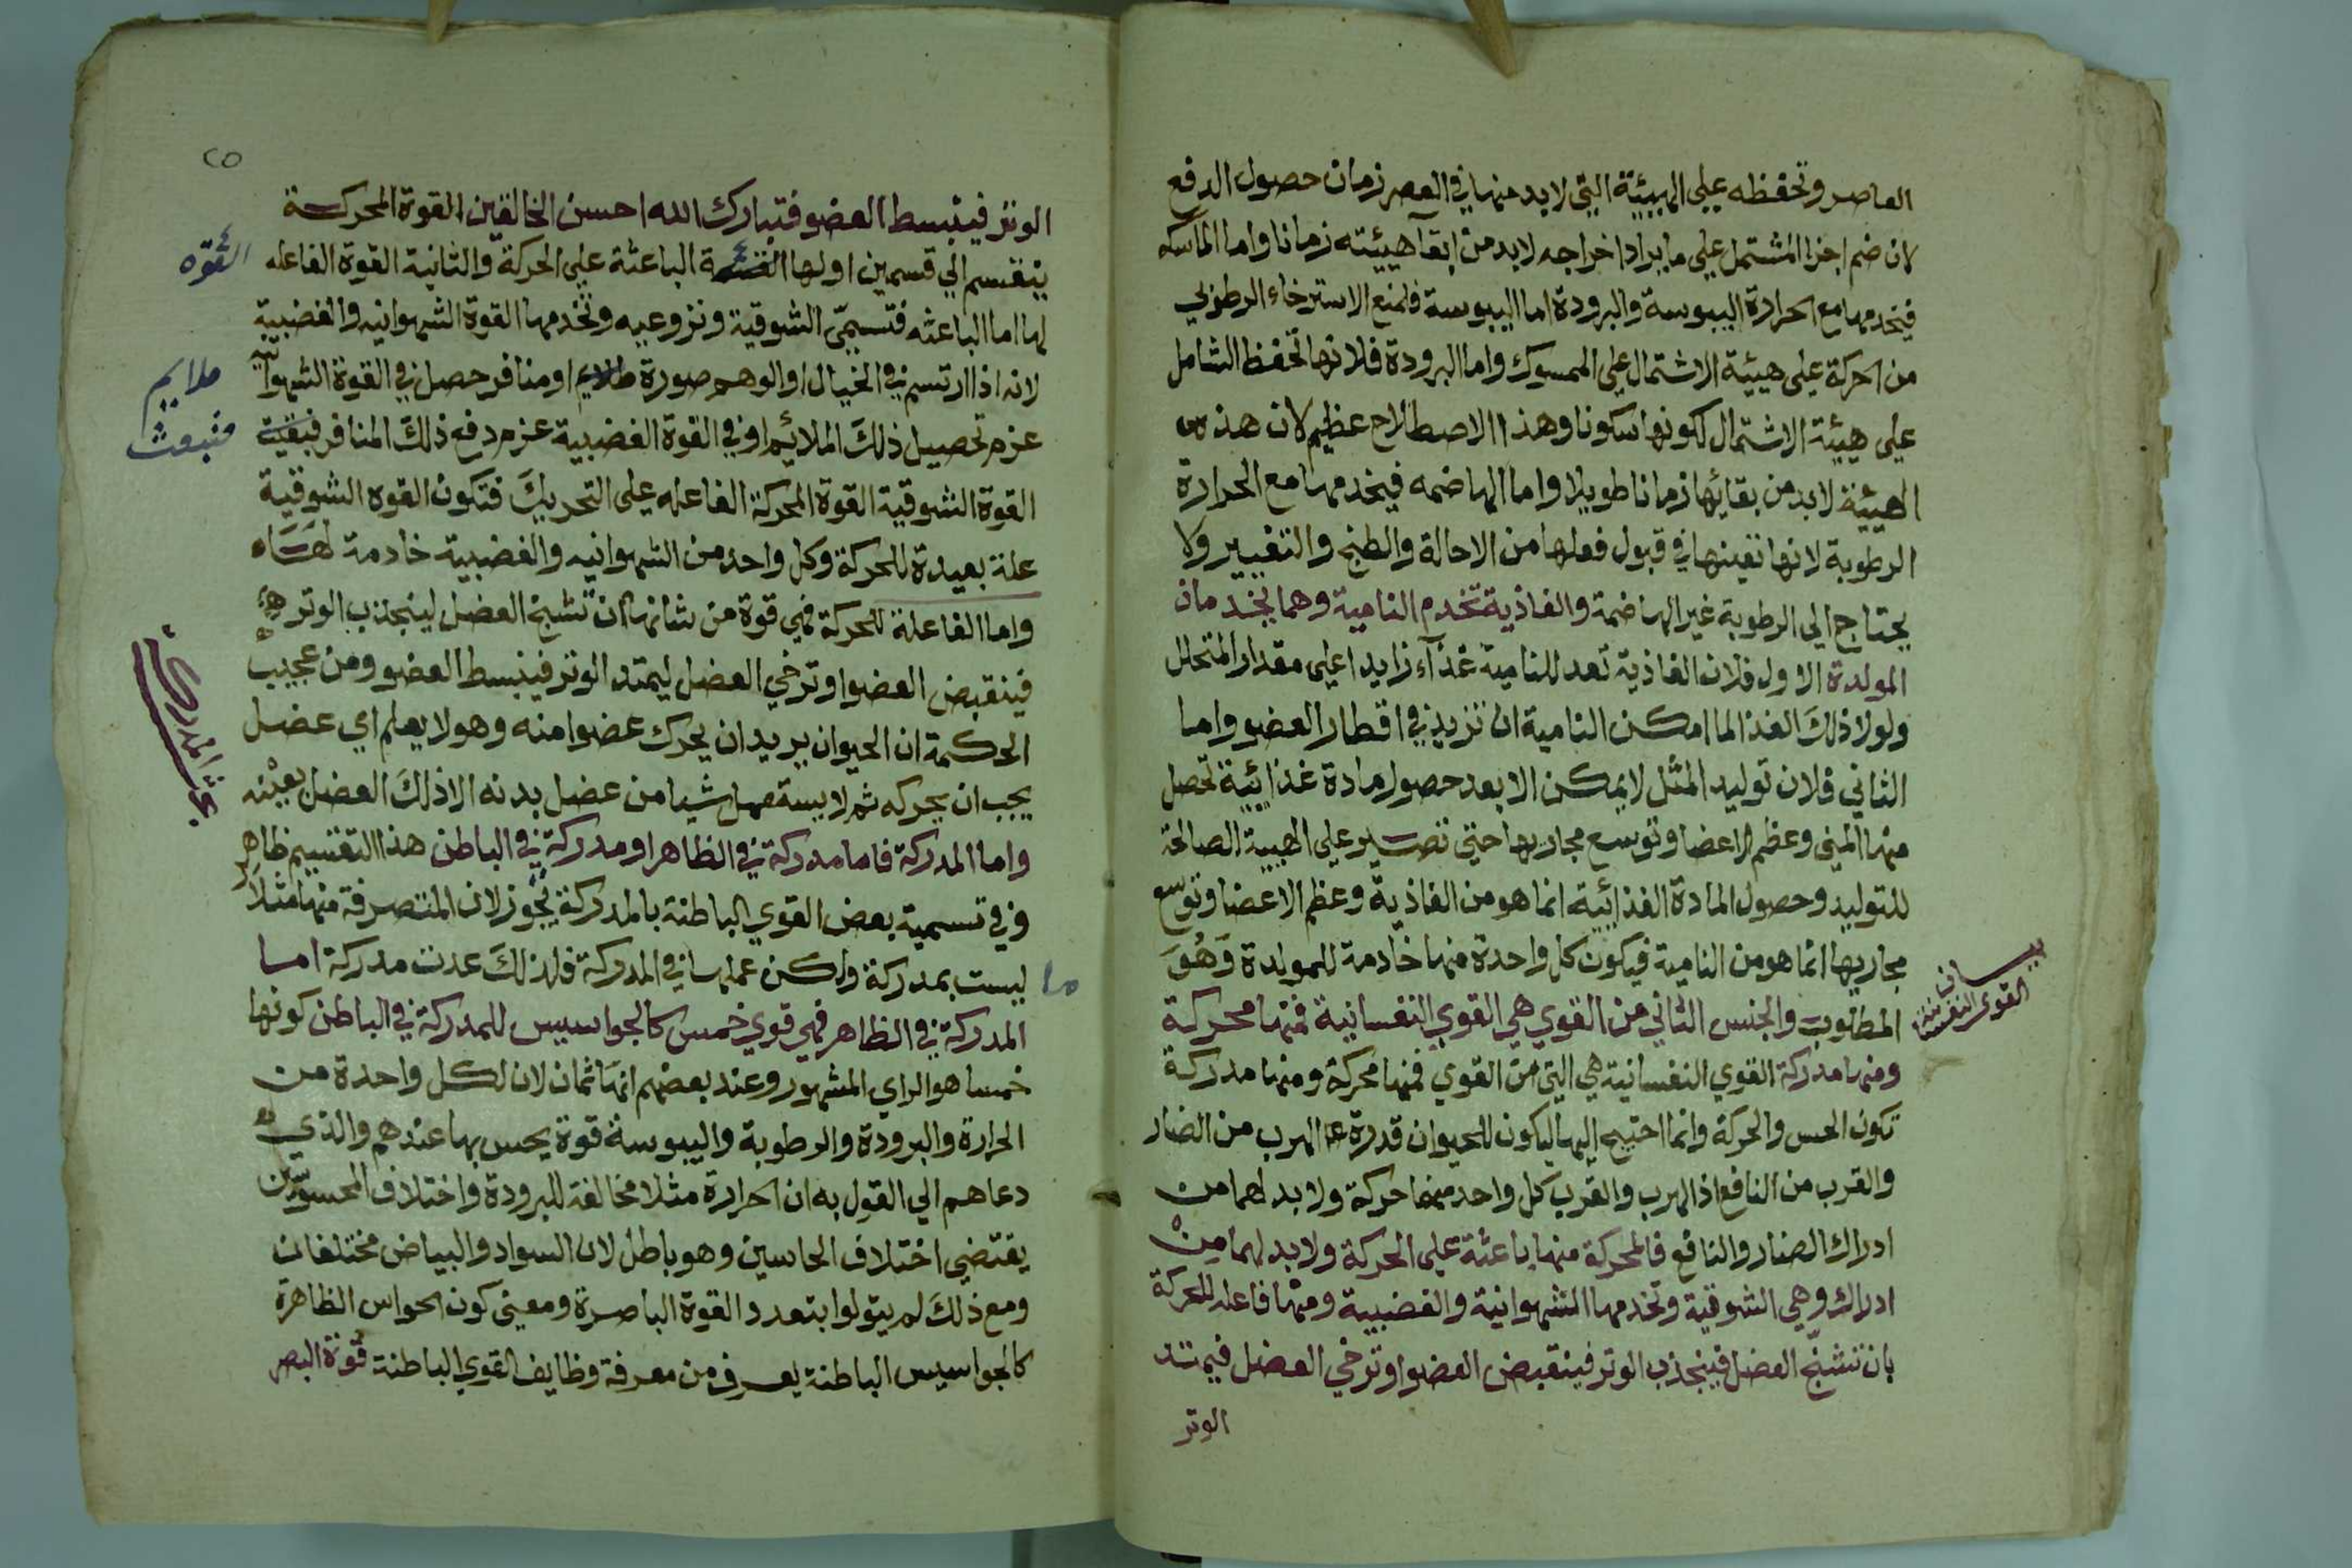 العاصر وتحفظه علي الهيئة التي لابد منها في العصر زمان حصول الدفع
لان ضم اجزا المشتمل علي ما يراد اخراجه لابد من ابقآ هيئته زمانا واما الماسكه
فيخدمها مع الحرارة اليبوسة والبرودة اما اليبوسة فلمنع الاسترخاء الرطوبي
من الحركة علي هيئة الاشتمال علي الممسوك واما البرودة فلانها تحفظ الشامل
علي هيئة الاشتمال لكونها سكونا وهذا الاصطلاح عظيم لان هذه
الهيئة لابد من بقائها زمانا طويلا واما الهاضمه فيخدمها مع الحرارة
الرطوبة لانها تعينها في قبول فعلها من الاحالة والطبخ والتغيير ولا
يحتاج الي الرطوبة غير الهاضمة والغاذية تخدم النامية وهما يخدمان
المولدة الاول فلان الغاذية تعد للنامية غذآء زايدا علي مقدار المتحلل
ولولا ذلك الغذا لما امكن النامية ان تزيد في اقطار العضو واما
الثاني فلان توليد المثل لا يمكن الا بعد حصول مادة غذائية تحصل
منها المني وعظم الاعضا وتوسع مجاريها حتي تصير علي الهيية الصالحة
للتوليد وحصول المادة الغذائية انما هو من الغاذية وعظم الاعضا وتوسع
مجاريها انما هو من النامية فيكون كل واحدة منها خادمة للمولدة وهو
المطلوب والجنس الثاني من القوي هي القوي النفسانية فمنها محركة
بيان
القوي النفسانية
ومنها مدركة القوي النفسانية هي التي من القوي فمنها محركة ومنها مدركة
تكون الحس والحركة وانما احتيج اليها ليكون للحيوان قدرة علي الهرب من الضار
والقرب من النافع اذ الهرب والقرب كل واحد منهما حركة ولابد لهما من
ادراك الضار والنافع فالمحركة منها باعثة علي الحركة ولابد لهما من
ادراك وهي الشوقية وتخدمها الشهوانية والغضبية ومنها فاعله للحركة
بان تشنج العضل فينجذب الوتر فينقبض العضو او ترخي العضل فيمتد
الوتر
٢٥
الوتر فينبسط العضو فتبارك الله احسن الخالقين القوة المحركة
ينقسم الي قسمين اولها القوة الباعثة علي الحركة والثانية القوة الفاعله
القوه
لها اما الباعثه فتسمي الشوقية ونزوعيه وتخدمها القوة الشهوانيه والغضبية
لانه اذا ارتسم في الخيال او الوهم صورة ملايم او منافر حصل في القوة الشهوانية
ملايم
عزم تحصيل ذلك الملائم او في القوة الغضبية عزم دفع ذلك المنافر فبقية
فتبعث
القوة الشوقية القوة المحركة الفاعله علي التحريك فتكون القوه الشوقية
علة بعيدة للحركة وكل واحد من الشهوانيه والغضبية خادمة لها
واما الفاعلة للحركة فهي قوة من شانها ان تشنج العضل لينجذب الوتر
فينقبض العضو او ترخي العضل ليمتد الوتر فينبسط العضو ومن عجيب
الحكمة ان الحيوان يريد ان يحرك عضوا منه وهو لا يعلم اي عضل
يجب ان يحركه ثم لا يستعمل شيا من عضل بدنه الا ذلك العضل بعينه
بحث المدركه
واما المدركة فاما مدركة في الظاهر او مدركة في الباطن هذا التقسيم ظاهر
وفي تسمية بعض القوي الباطنة بالمدركة تجوز لان المتصرفة منها مثلا
ليست بمدركة ولكن عملها في المدركة فلذلك عدت مدركة اما
ما
المدركة في الظاهر فهي قوي خمس كالجواسيس للمدركة في الباطن كونها
خمسا هو الراي المشهور وعند بعضهم انها ثمان لان لكل واحدة من
الحرارة والبرودة والرطوبة واليبوسة قوة يحس بها عندهم والذي
دعاهم الي القول به ان الحرارة مثلا مخالفة للبرودة واختلاف المحسوسين
يقتضي اختلاف الحاسين وهو باطل لان السواد والبياض مختلفان
ومع ذلك لم يتولوا بتعدد القوة الباصرة ومعني كون الحواس الظاهرة
كالجواسيس الباطنة يعرف من معرفة وظايف القوي الباطنة قوة البصر